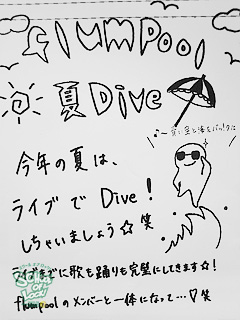 flumpool
夏Dive
♪〜青い空と海をバックに
今年の夏は、
ライブで Dive!
しちゃいましょう☆笑
ライブまでに歌も踊りも完璧にしてきます☆!
flumpoolのメンバーと一体になって…♡笑